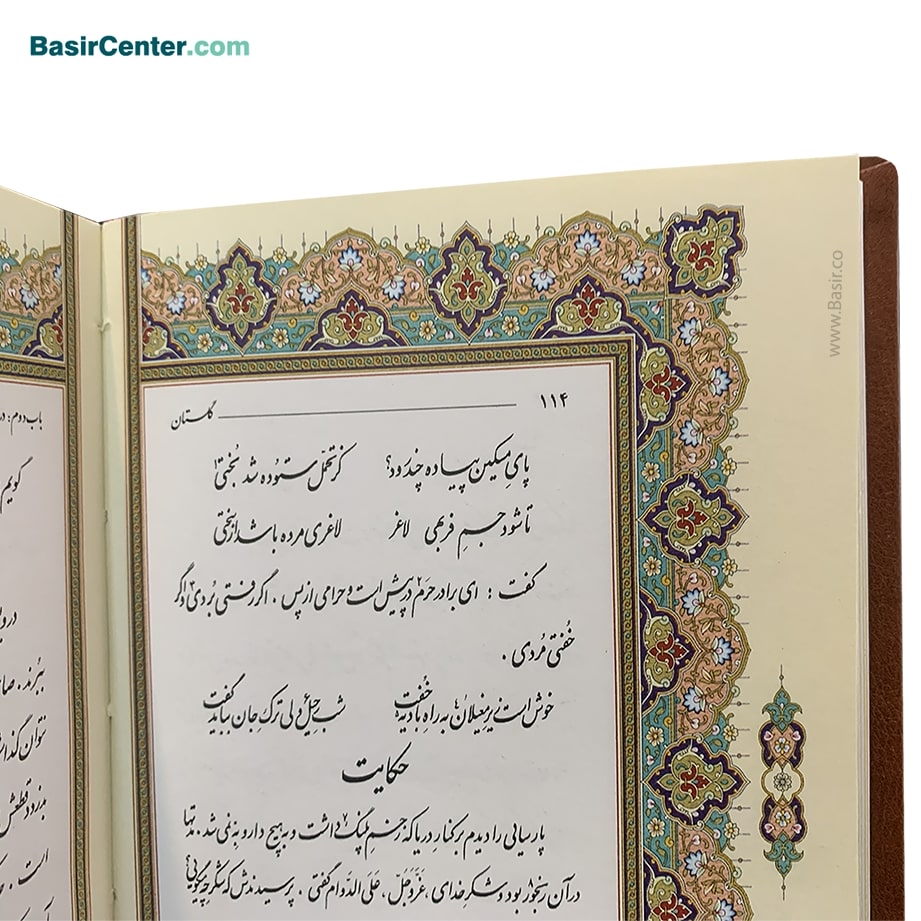 BasirCenter.com
www.Basir.co
۱۱۴ گلستان
پایِ مسکین پیاده چند رود؟ کز تحمّل ستوده شد بُختی۱
تا شود جسمِ فربهی لاغر لاغری مرده باشد از سختی
گفت: ای برادر حَرَم۲ در پیش است و حرامی از پس. اگر رفتی بُردی۳ و اگر
خُفتی مُردی.
خوش است زیرِ مغیلان۴ به راهِ بادیه خُفت شبِ رحیل۵ ولی ترکِ جان بباید گفت
حکایت
پارسایی را دیدم بر کنار دریا که زخمِ پلنگ۷ داشت و به هیچ دارو به نمی شد. مدّتها
در آن رنجور بود و شکرِ خدای، عَزَّوَجَلّ، عَلَی الدَّوام گفتی. پرسیدندش که شکرِ چه می گویی؟
باب دوم: در
گویم
ببُرند. صا
نتوان گذا
بدزدد قطعش
است.